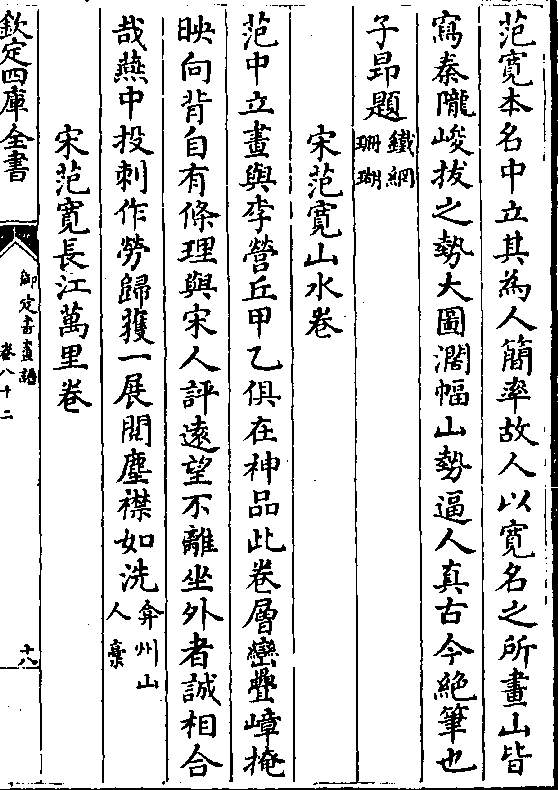 范寛本名中立其為人簡率故人以寛名之所畫山皆
寫秦隴峻拔之勢大圖濶幅山勢逼人真古今絶筆也
子昻題鐵網珊瑚
宋范寛山水卷
范中立畫與李營丘甲乙俱在神品此卷層巒疊嶂掩
映向背自有條理與宋人評遠望不離坐外者誠相合
哉燕中投刺作勞歸獲一展閱塵襟如洗弇州山人藁
宋范寛長江萬里卷
欽定四庫全書
御定書畫譜
卷八十二
十八